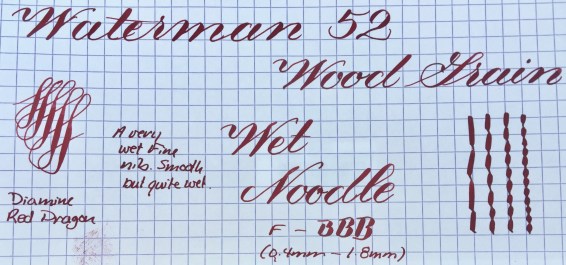 Waterman 52
Wood Grain
A very
wet Fine
nib. Smooth
but quite wet.
Wet
Noodle
Diamine
Red Dragon
F - BBB
(0.4mm - 1.8mm)